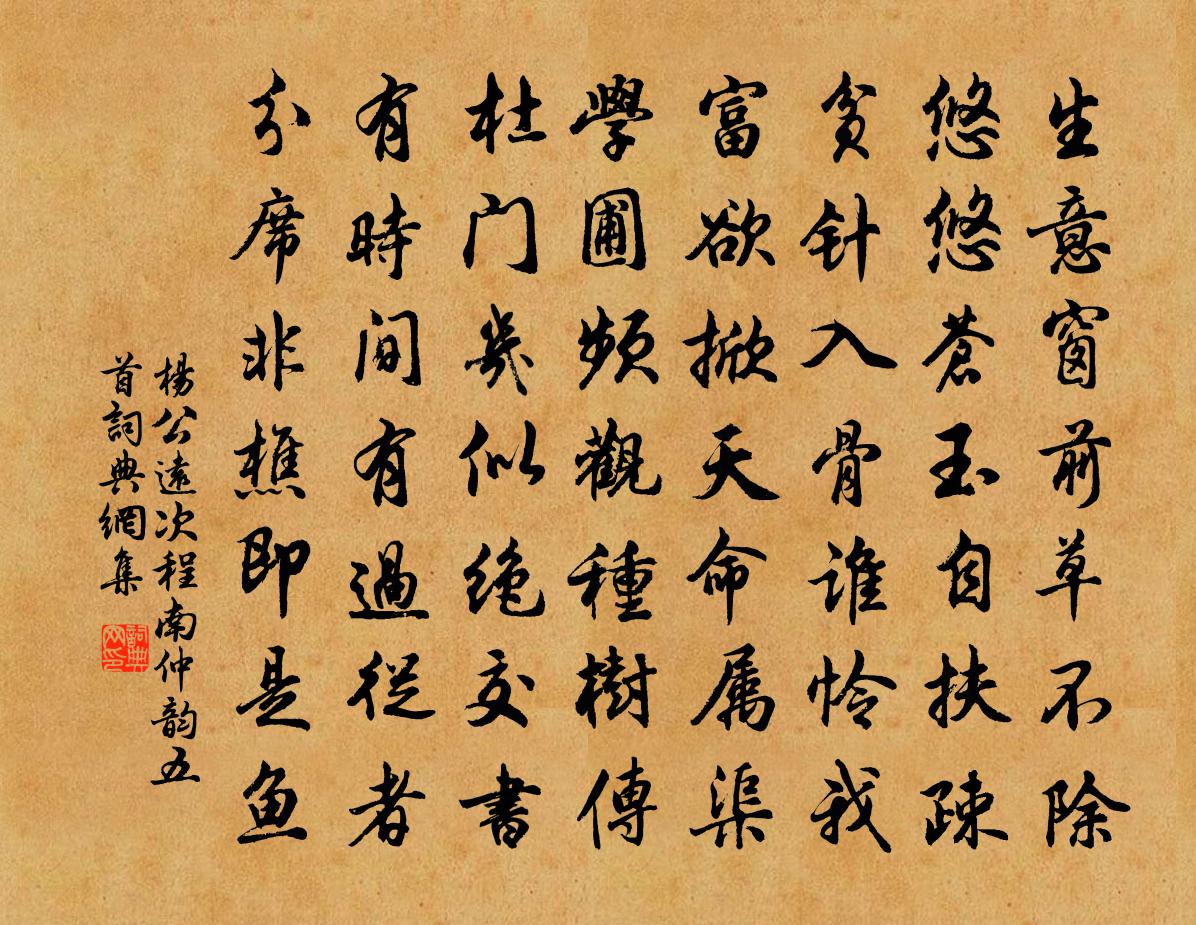 生意窗前草不除
悠悠蒼玉自扶疎
貧针入骨谁怜我
富欲掀天命属渠
學圃頻觀種樹傳
杜门幾似绝交書
有時间有過從者
分席非樵即是鱼
楊公遠次程南仲韵五
首詞典網集
詞典
网印